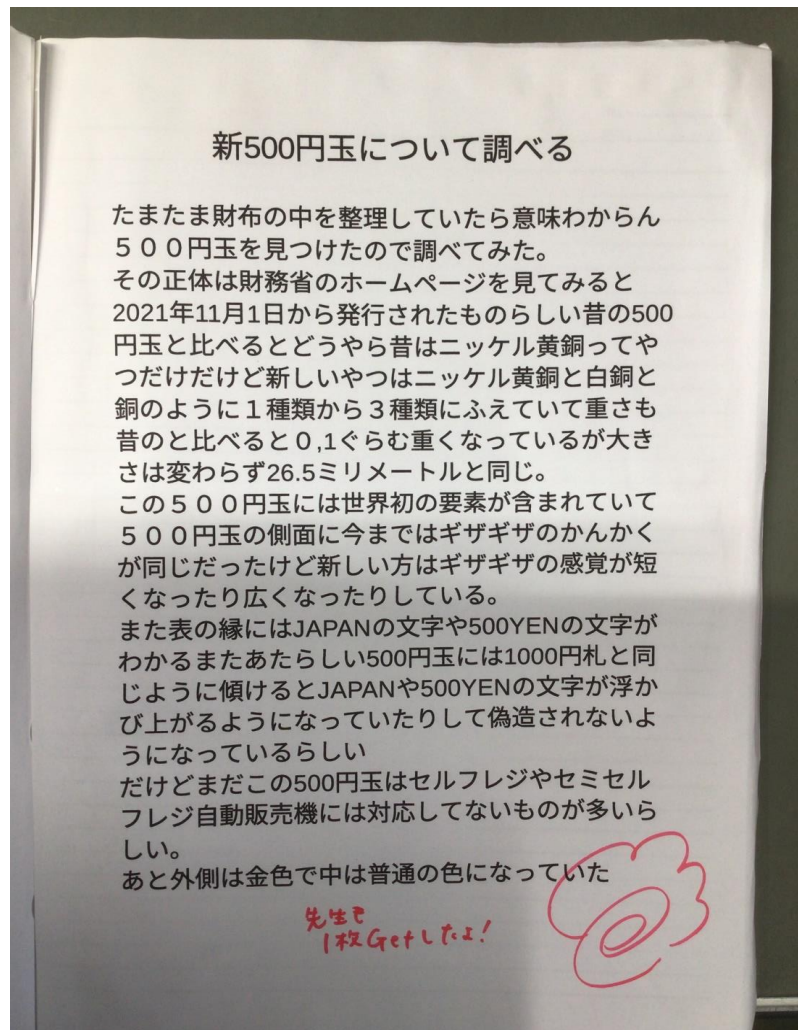 新500円玉について調べる
たまたま財布の中を整理していたら意味わからん
５００円玉を見つけたので調べてみた。
その正体は財務省のホームページを見てみると
2021年11月1日から発行されたものらしい昔の500
円玉と比べるとどうやら昔はニッケル黄銅ってや
つだけだけど新しいやつはニッケル黄銅と白銅と
銅のように１種類から３種類にふえていて重さも
昔のと比べると０,1ぐらむ重くなっているが大き
さは変わらず26.5ミリメートルと同じ。
この５００円玉には世界初の要素が含まれていて
５００円玉の側面に今まではギザギザのかんかく
が同じだったけど新しい方はギザギザの感覚が短
くなったり広くなったりしている。
また表の縁にはJAPANの文字や500YENの文字が
わかるまたあたらしい500円玉には1000円札と同
じように傾けるとJAPANや500YENの文字が浮か
び上がるようになっていたりして偽造されないよ
うになっているらしい
だけどまだこの500円玉はセルフレジやセミセル
フレジ自動販売機には対応してないものが多いら
しい。
あと外側は金色で中は普通の色になっていた
先生も
1枚Getしたよ!